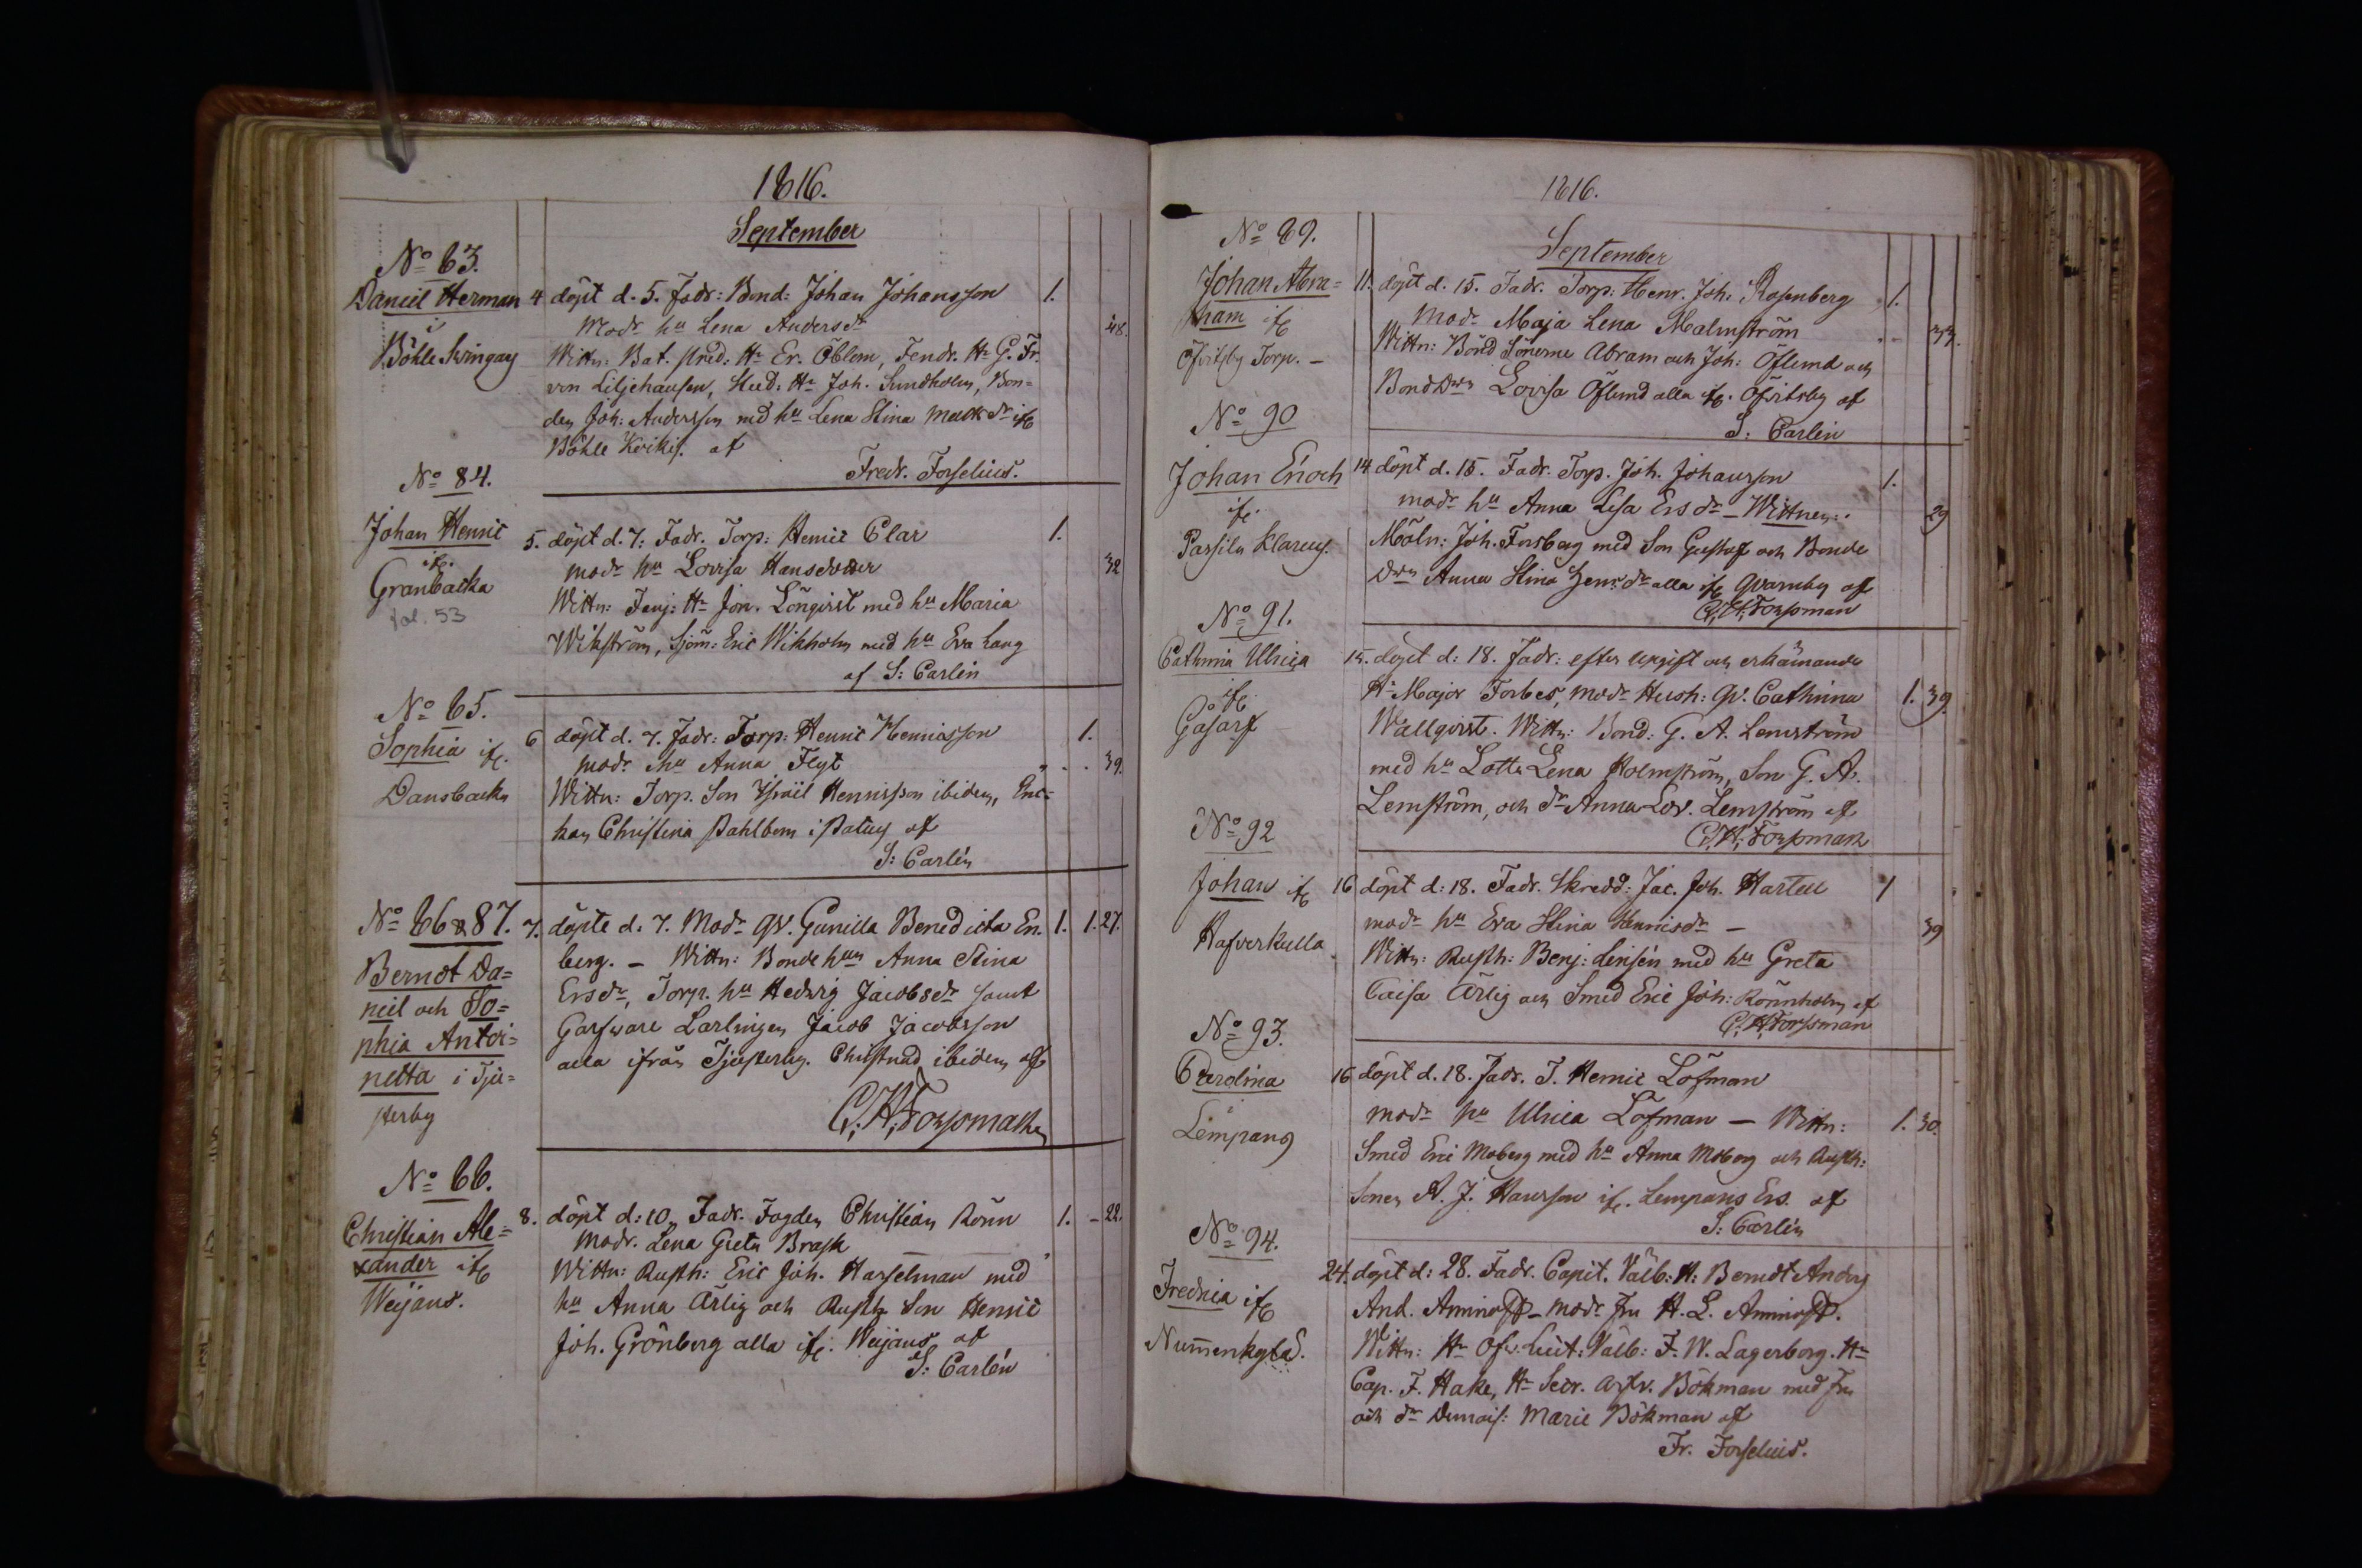 1816.
September
No 83.
Daniel Herman
i
Böhle Svingars
4 döpt d. 5. Fadr: Bond: Johan Johansson 1.
Modr hu Lena Andersdr 48.
Wittn: Bat. pred: Hr Er. Öblom, Fendr. Hr G. Fr.
von Liljehausen, Stud: Hr Joh. Sundholm, Bon=
den Joh: Andersson med hu Lena Stina ifr
Böhle Kvikis. af
Fredr. Forselius.
No 84.
Johan Henric
ifr.
Granbacka
fol. 53
5. döpt d. 7. Fadr. Torp: Henric Clar 1.
modr hu Lovisa Hansdotter 32
Wittn: Fenj: Hr Jon. Lönqvist med hu Maria
Wikström, Sjöm: Eric Wikholm med hu Eva Lang
af S: Carlén
No 85.
Sophia ifr.
Dansbacka
6 döpt d. 7. Fadr: Torp: Henric Henricsson 1.
modr hu Anna Flyt 39.
Wittn: Torp. Son Israël Henricsson ibidem, Enc=
kan Christina Dahlbom i af
S: Carlén
No 86 & 87.
Berndt Da=
niel och So=
phia Antoi=
netta i Tju=
sterby
7. döpte d. 7. Modr qv. Gunilla Benedicta En. 1. 1. 27.
berg. – Wittn: Bonde hun Anna Stina
Ersdr, Torp. hu Hedvig Jacobsdr samt
Garfware Lärlingen Jacob Jacobsson
alla ifrån Tjusterby. Christnad ibidem af
C. H. Forssman
No 88.
Christian Ale=
xander ifr
Weijans.
8. döpt d: 10. Fadr. Fogden Christian Rönn 1. – 22.
Modr. Lena Greta Brask
Wittn: Rusth: Eric Joh. Hasselman med
hu Anna Ärlig och Rusth Son Henric
Joh. Grönberg alla ifr. Weijans af
S: Carlén
1816.
September
No 89.
Johan Abra=
ham ifr
Öfvitsby Torp. –
11. döpt d. 15. Fadr. Torp: Henr. Joh. Rosenberg 1.
Modr Maja Lena Malmström 33.
Wittn: Bond Sönerne Abram och Joh: Öflund och
Bond Lovisa Öflund alla ifr. Öfvitsby af
S: Carlén
No 90
Johan Enoch
ifr.
14 döpt d. 15. Fadr. Torp. Joh. Johansson 1.
modr hu Anna Lisa Ersdr – Wittnen: 29
Möln: Joh. Forsberg med Son Gustaf och Bonde
Anna Stina dr alla ifr Qvarnby af
C. H. Forssman
No 91.
Cathrina Ulrica
ifr.
15. döpt d: 18. Fadr: efter uppgift och erkännande
Hr Major Forbes, modr Hush: qv. Cathrina 1. 39.
Wallqvist. Wittn: Bond: G. A. Lemström
med hu Lotta Lena Holmström, Son G. A.
Lemström, och dr Anna Lov. Lemström af
C. H. Forssman
No 92
Johan ifr
Hafverkulla
16 döpt d: 18. Fadr. Skredd: Jac. Joh. Hartell 1
modr hu Eva Stina Henricsdr – 39
Wittn: Rusth: Benj: Linsén med hu Greta
Caisa Ärlig och Smed Eric Joh: Rönnholm af
C. H. Forssman
No 93.
Carolina
i
Lempans
16 döpt d. 18. Fadr. T. Henric Löfman
modr hu Ulrica Löfman – Wittn: 1. 30.
Smed Eric Moberg med hu Anna Moberg och Rusth:
Sonen A. J. Hansson ifr. Lempans Ers. af
S: Carlén
No 94.
Fredrica ifr
Nummenkylä S.
24. döpt d: 28. Fadr. Capit. Välb: H: Berndt Anders
And. Aminoff – modr fru H. L. Aminoff.
Wittn: Hr Öfv. Leut: Välb: F. W. Lagerborg. Hr
Cap. F. Hake, Hr Secr. Bökman med fru
och dr Demois: Marie Bökman af
Fr. Forselius.